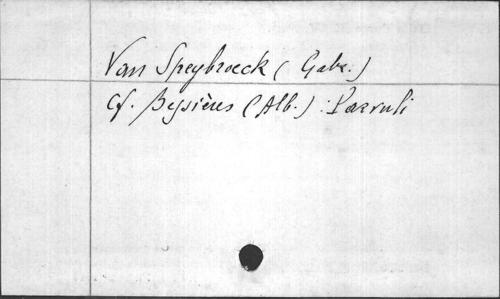 Van Speybroeck (Gabr.)
Cf. Bessières (Alb.) : Parvuli